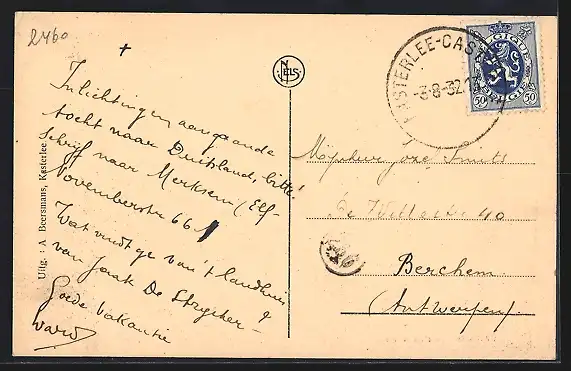 2460
+
Inlichtingen aangaande
tocht naar Duitsland, bitte!
schrijf naar Merksem (Elf-
Novemberstr 66)
Wat vindt ge van 't landhuis
van Jaak De Strycker?
Goede vakantie
Ward
Uitg. : A. Beersmans, Kasterlee
NELS
KASTERLEE-CAS
-3-8-32
BELGIQUE
50 BELGIË 50
Mejuffer Joze Smits
De Villestr 40
Berchem
(Antwerpen)